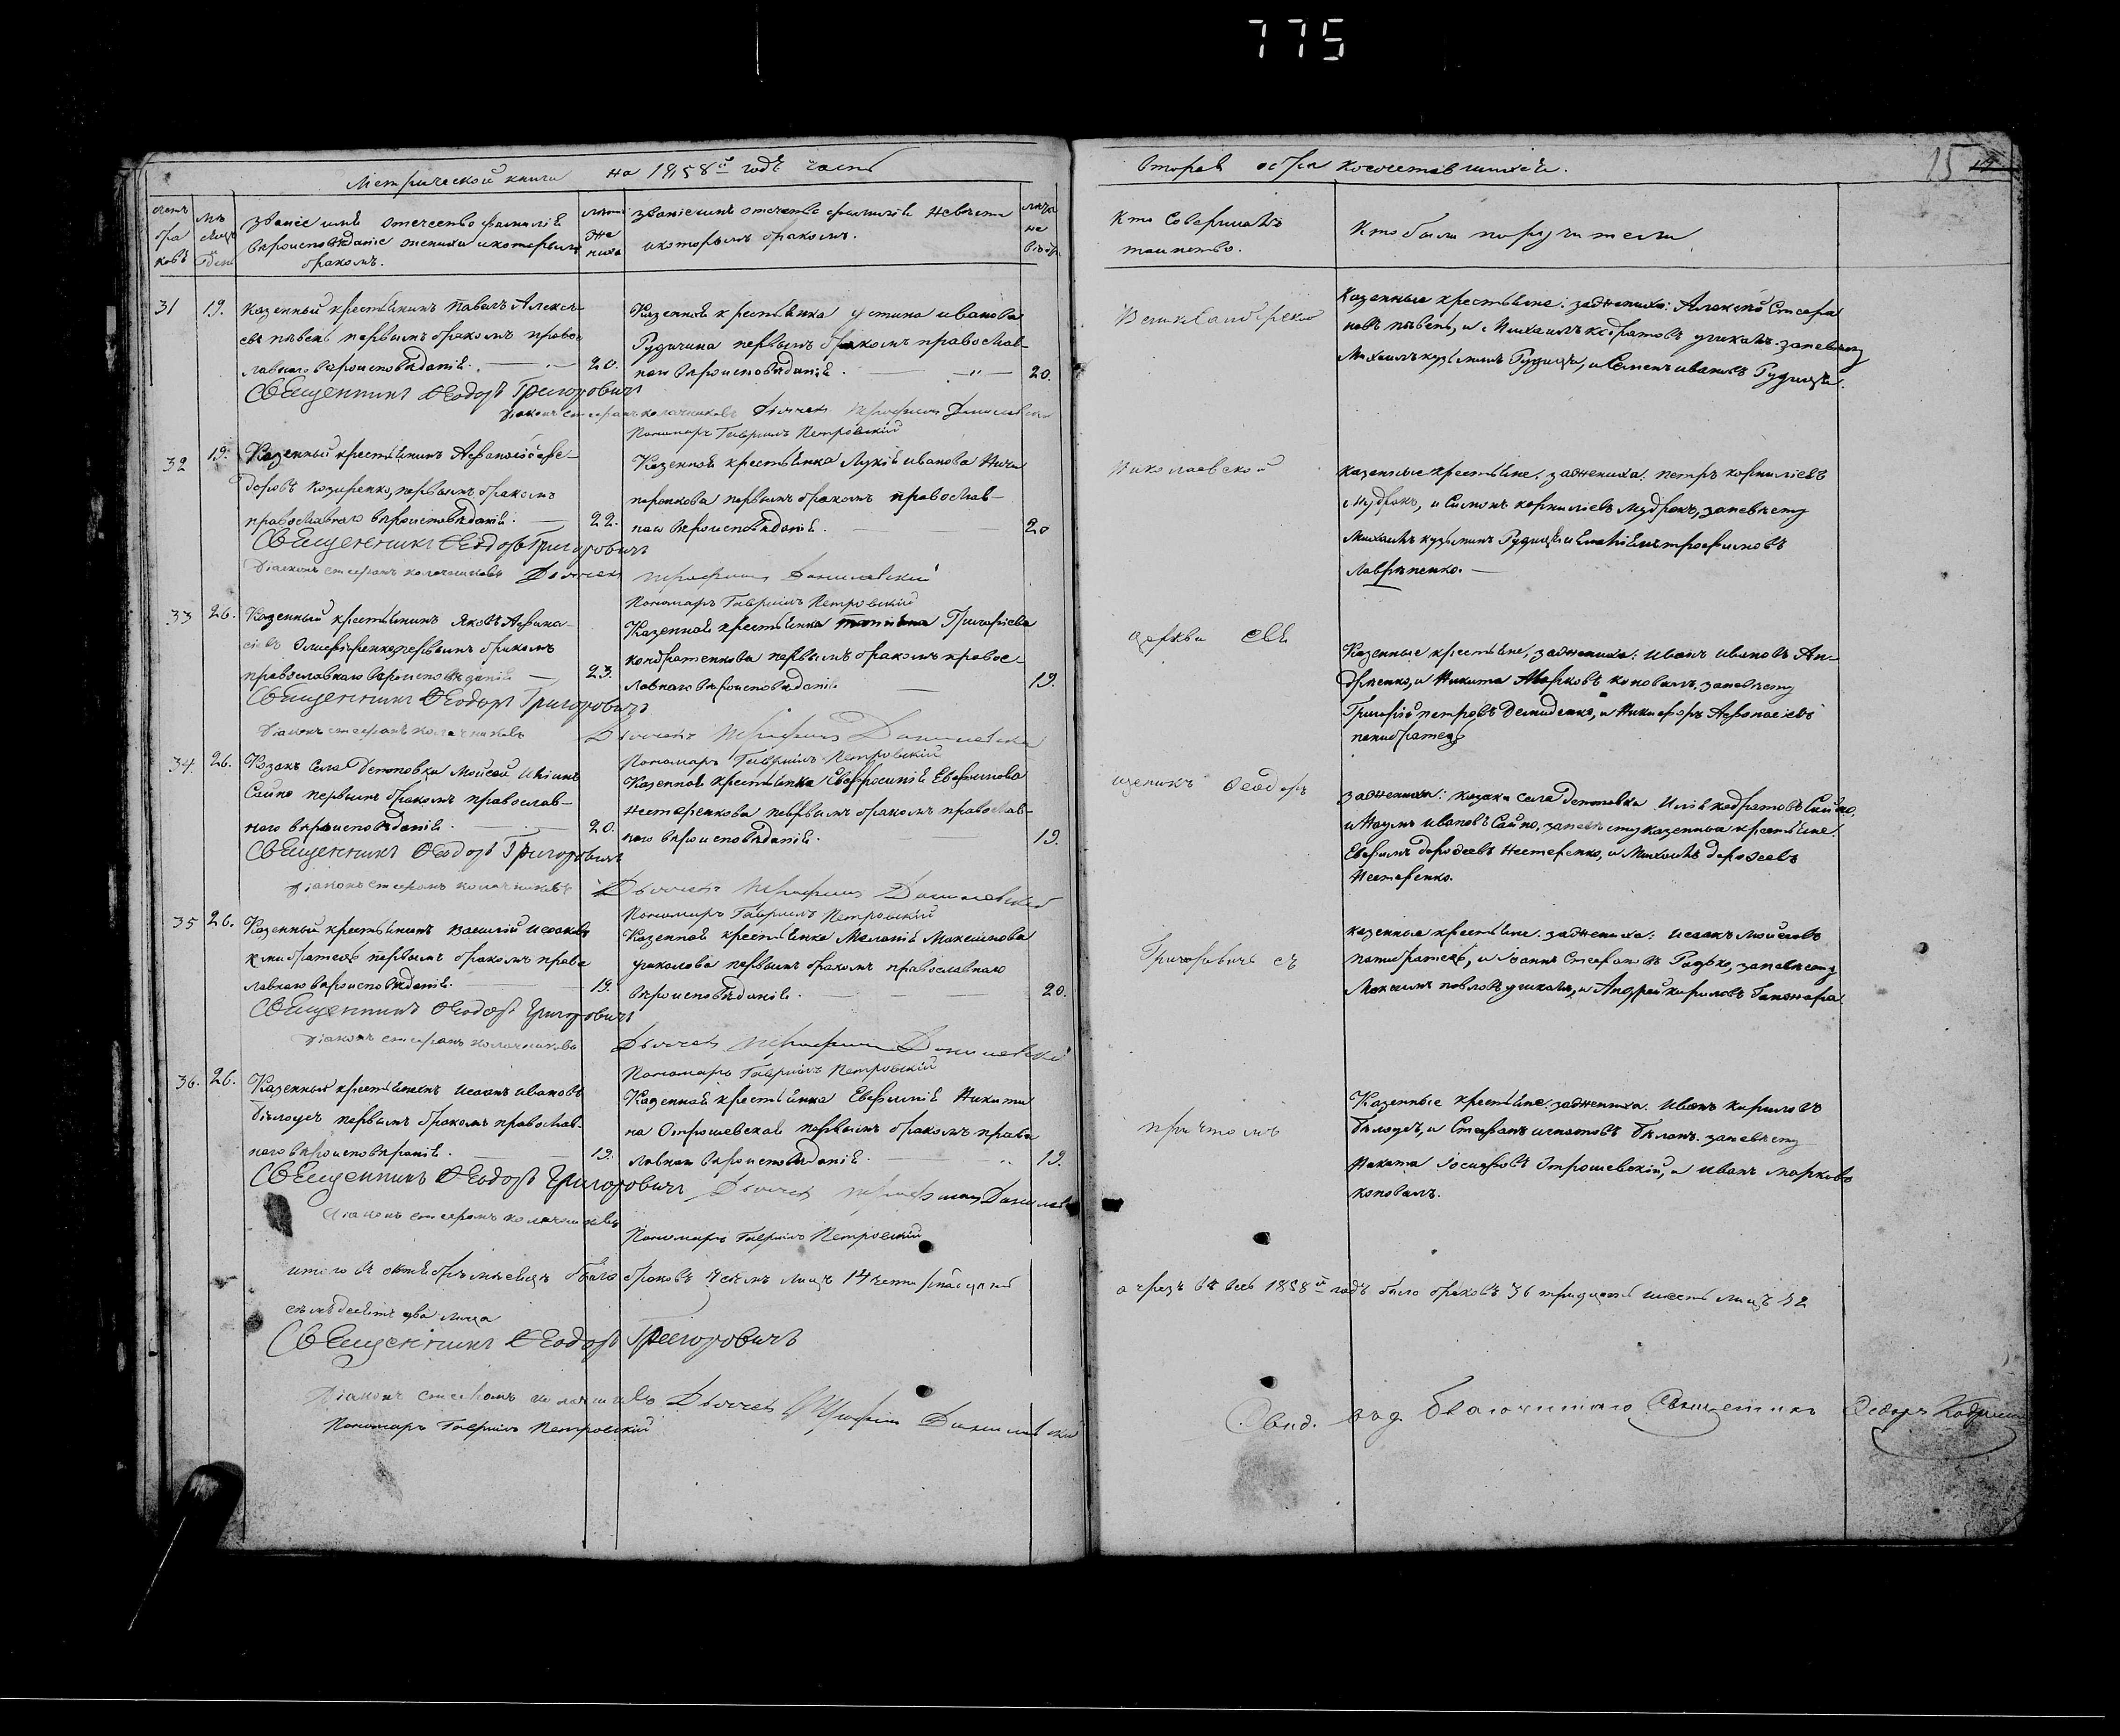 775
Метрической книги на 1858й годъ часть
второя о бракосочетавшихся.
15
счетъ браковъ
мѣсяцъ день
званіе имя отечество фамилія
вѣроисповѣданіе жениха и которымъ
бракомъ.
лѣта жениха
званіе имя отечество фамилія невѣсты
и которымъ бракомъ.
лѣта невѣсты
Кто Совершалъ
таинство.
Кто были поручители
31 19. Казенный крестьянинъ Павелъ Алексѣ-
евъ пѣвень первымъ бракомъ правос-
лавнаго вѣроисповѣданія. 20.
Казенная крестьянка устина иванова
Рудичина первымъ бракомъ православ-
наго вѣроисповѣданія. 20.
Казенные крестьяне: за жениха: Алексѣй Стефа
новъ пѣвень, и Михаилъ за невѣсту
Михаилъ кузьминъ и Семенъ ивановъ
Священникъ Феодоръ Григоровичъ
Діаконъ стефанъ колачниковъ Дьячекъ Трофимъ Данилевскій
Пономарь Гавріилъ Петровскій
32 19. Казенный крестьянинъ Афанасій фе-
доровъ козиренко, первымъ бракомъ
православнаго вѣроисповѣданія. 22.
Казенная крестьянка Лукія иванова Ничи
поренкова первымъ бракомъ православ-
наго вѣроисповѣданія. 20
Николаевской
казенные крестьяне: за жениха: петръ корниліевъ
Мудракъ, и Симонъ корниліевъ мудракъ, за невѣсту
Михаилъ кузьминъ трофимовъ
Лаврѣненко.
Священникъ Феодоръ Григоровичъ
Діаконъ стефанъ колачниковъ Дьячекъ Трофимъ Данилевскій
Пономарь Гавріилъ Петровскій
33 26. Казенный крестьянинъ Яковъ Афана-
сіевъ первымъ бракомъ
православнаго вѣроисповѣданія 23.
Казенная крестьянка Григоріева
кондратенкова первымъ бракомъ правос-
лавнаго вѣроисповѣданія 19.
церкви свя
Казенные крестьяне, за жениха: иванъ ивановъ Ан-
дрѣенко, и Никита Марковъ коновалъ, за невѣсту
Григорій петровъ Демиденко, и Никифоръ Афанасіевъ
Священникъ Феодоръ Григоровичъ
Діаконъ стефанъ колачниковъ Дьячекъ Трофимъ Данилевскій
Пономарь Гавріилъ Петровскій
34. 26. Козакъ Села Моисей Ильинъ
Сайко первымъ бракомъ православ-
наго вѣроисповѣданія. 20.
Казенная крестьянка Евфросинія Евфимова
нестеренкова первымъ бракомъ православ-
наго вѣроисповѣданія. 19.
щеникъ Феодоръ
за жениха: козаки села Илія кодратовъ Сайко,
и Наумъ ивановъ Сайко, за невѣсту казенные крестьяне:
Евфимъ дорофеевъ Нестеренко, и Михаилъ дорофеевъ
Нестеренко.
Священникъ Феодоръ Григоровичъ
Діаконъ стефанъ колачниковъ Дьячекъ Трофимъ Данилевскій
Пономарь Гавріилъ Петровскій
35 26. Казенный крестьянинъ Василій Исааковъ
первымъ бракомъ право
лавнаго вѣроисповѣданія. 19.
Казенная крестьянка Меланія Максимова
учкалова первымъ бракомъ православнаго
вѣроисповѣданія. 20.
Григоровичъ съ
казенные крестьяне: за жениха: исаакъ Моисеевъ
и Іоаннъ Стефановъ за невѣсту
Максимъ павловъ учкалъ, и Андрей кириловъ
Священникъ Феодоръ Григоровичъ
Діаконъ стефанъ колачниковъ Дьячекъ Трофимъ Данилевскій
Пономарь Гавріилъ Петровскій
36. 26. Казенный крестьянинъ ивановъ
бѣлоусъ первымъ бракомъ православ-
наго вѣроисповѣданія. 19.
Казенная крестьянка Евфимія Никити
на Отрошевская первымъ бракомъ право
лавнаго вѣроисповѣданія. 19.
причтомъ
Казенные крестьяне: за жениха: Иванъ кириловъ
бѣлоусъ, и Стефанъ игнатовъ за невѣсту
Никита Іосифовъ Отрошевскій, и иванъ марковъ
коновалъ.
Священникъ Феодоръ Григоровичъ Дьячекъ Трофимъ Данилев
Діаконъ стефанъ колачниковъ
Пономарь Гавріилъ Петровскій
итого въ октябрѣ мѣсяцѣ было браковъ 7 семь лицъ 14 четырнадцать
а чрезъ весь 1858й годъ было браковъ 36 тридцать шесть лицъ 72
семьдесятъ два лица
Священникъ Феодоръ Григоровичъ
Діаконъ стефанъ колачниковъ Дьячекъ Трофимъ Данилевскій
Пономарь Гавріилъ Петровскій
Свид. Благочиннаго Священникъ